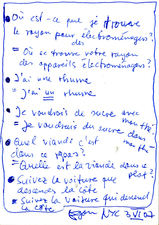 • Où est-ce que je trouve
le rayon pour électroménagers?
des
= Où se trouve votre rayon
des appareils électroménagers?
• J'ai une rhume
= j'ai un rhume
• Je voudrais de sucre avec
mon thé
= Je voudrais du sucre dans
mon thé
• Quel viande c'est
dans ce repas?
= Quelle est la viande dans ce
plat?
• Suivez la voiture que
descends la côte
= Suivez la voiture qui descend
la côte
NYC 3 VI 07